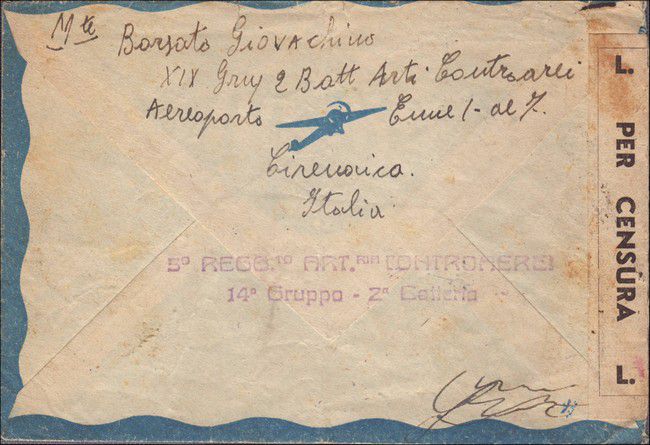 Mte Borsato Giovachino
XIV Grup 2 Batt Arti Contraarei
Aereoporto Enne 1- al 7.
Cirenaica.
Italia
5° REGG.TO ART.RIA CONTROAEREI
14° Gruppo - 2a Batteria
L. PER CENSURA L.